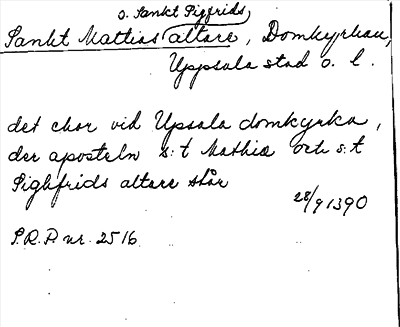 o. Sankt Sigfrids
Sankt Mattias altare, Domkyrkan,
Uppsala stad o. l.
det chor vid Upsala domkyrka,
der aposteln s:t Mathiæ och s:t
Sighfrids altare står
28/9 1390
S.R.P. nr. 2516.